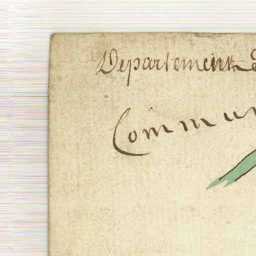 Departement d
Commun